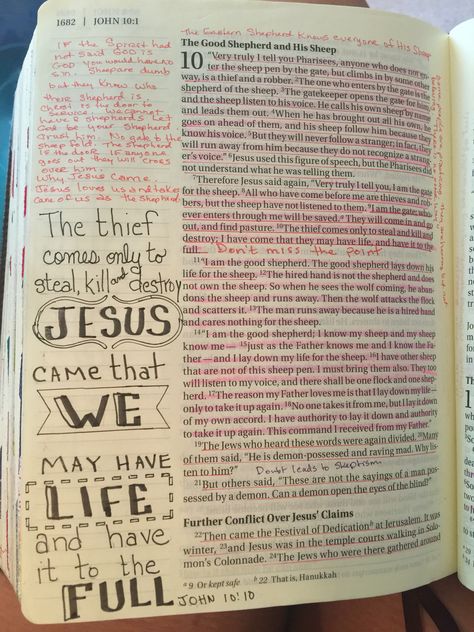 1682 | JOHN 10:1
The Eastern Shepherd knows everyone of His Sheep
IF the Spirit had
not said GOD is
GOD you would have no
sin. Sheep are dumb
but they know who
their shepherd is
Christ is the door to
service and cannot
have 2 shepherds. Let
God be your Shepherd
trust him. No gate to the
sheep fold. The shepherd
is the door. If anyone
goes out they will cross
over him.
Why Jesus came.
Jesus loves us and takes
care of us as the Shepherd
The thief
comes only to
steal, kill and destroy
JESUS
CAME that
WE
MAY HAVE
LIFE
and have
it to the
FULL
JOHN 10:10
The Good Shepherd and His Sheep
10 "Very truly I tell you Pharisees, anyone who does not en-
ter the sheep pen by the gate, but climbs in by some other
way, is a thief and a robber. 2The one who enters by the gate is the
shepherd of the sheep. 3The gatekeeper opens the gate for him,
and the sheep listen to his voice. He calls his own sheep by name
and leads them out. 4When he has brought out all his own, he
goes on ahead of them, and his sheep follow him because they
know his voice. 5But they will never follow a stranger; in fact, they
will run away from him because they do not recognize a strang-
er's voice." 6Jesus used this figure of speech, but the Pharisees did
not understand what he was telling them.
7Therefore Jesus said again, "Very truly I tell you, I am the gate
for the sheep. 8All who have come before me are thieves and rob-
bers, but the sheep have not listened to them. 9I am the gate; who-
ever enters through me will be saved.a They will come in and go
out, and find pasture. 10The thief comes only to steal and kill and
destroy; I have come that they may have life, and have it to the
full. Don't miss the point
11"I am the good shepherd. The good shepherd lays down his
life for the sheep. 12The hired hand is not the shepherd and does
not own the sheep. So when he sees the wolf coming, he aban-
dons the sheep and runs away. Then the wolf attacks the flock
and scatters it. 13The man runs away because he is a hired hand
and cares nothing for the sheep.
14"I am the good shepherd; I know my sheep and my sheep
know me — 15just as the Father knows me and I know the Fa-
ther — and I lay down my life for the sheep. 16I have other sheep
that are not of this sheep pen. I must bring them also. They too
will listen to my voice, and there shall be one flock and one shep-
herd. 17The reason my Father loves me is that I lay down my life —
only to take it up again. 18No one takes it from me, but I lay it down
of my own accord. I have authority to lay it down and authority
to take it up again. This command I received from my Father."
19The Jews who heard these words were again divided. 20Many
of them said, "He is demon-possessed and raving mad. Why lis-
ten to him?" Doubt leads to skeptism
21But others said, "These are not the sayings of a man pos-
sessed by a demon. Can a demon open the eyes of the blind?"
Further Conflict Over Jesus' Claims
22Then came the Festival of Dedicationb at Jerusalem. It was
winter, 23and Jesus was in the temple courts walking in Solo-
mon's Colonnade. 24The Jews who were there gathered around
a 9 Or kept safe b 22 That is, Hanukkah